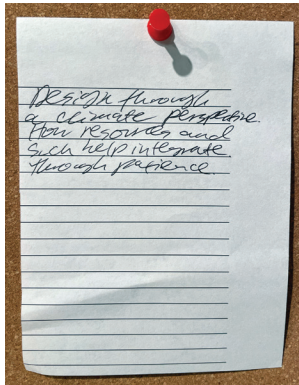 Design through
a climate perspective.
How resources and
such help integrate
through patience.